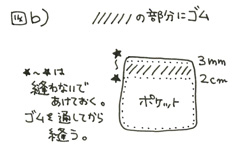 図b) /////の部分にゴム
★〜★は
縫わないで
あけておく。
ゴムを通してから
縫う。
★
★
3mm
2cm
ポケット